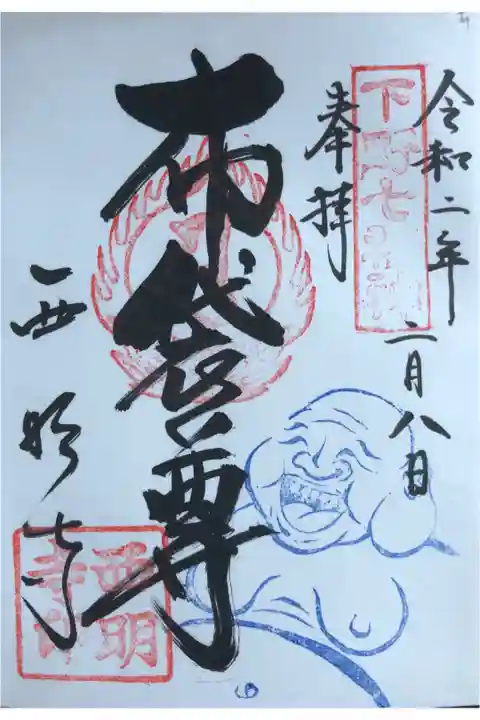 令和二年二月八日
奉拝
下野七福神
布袋尊
西明寺
西明寺印